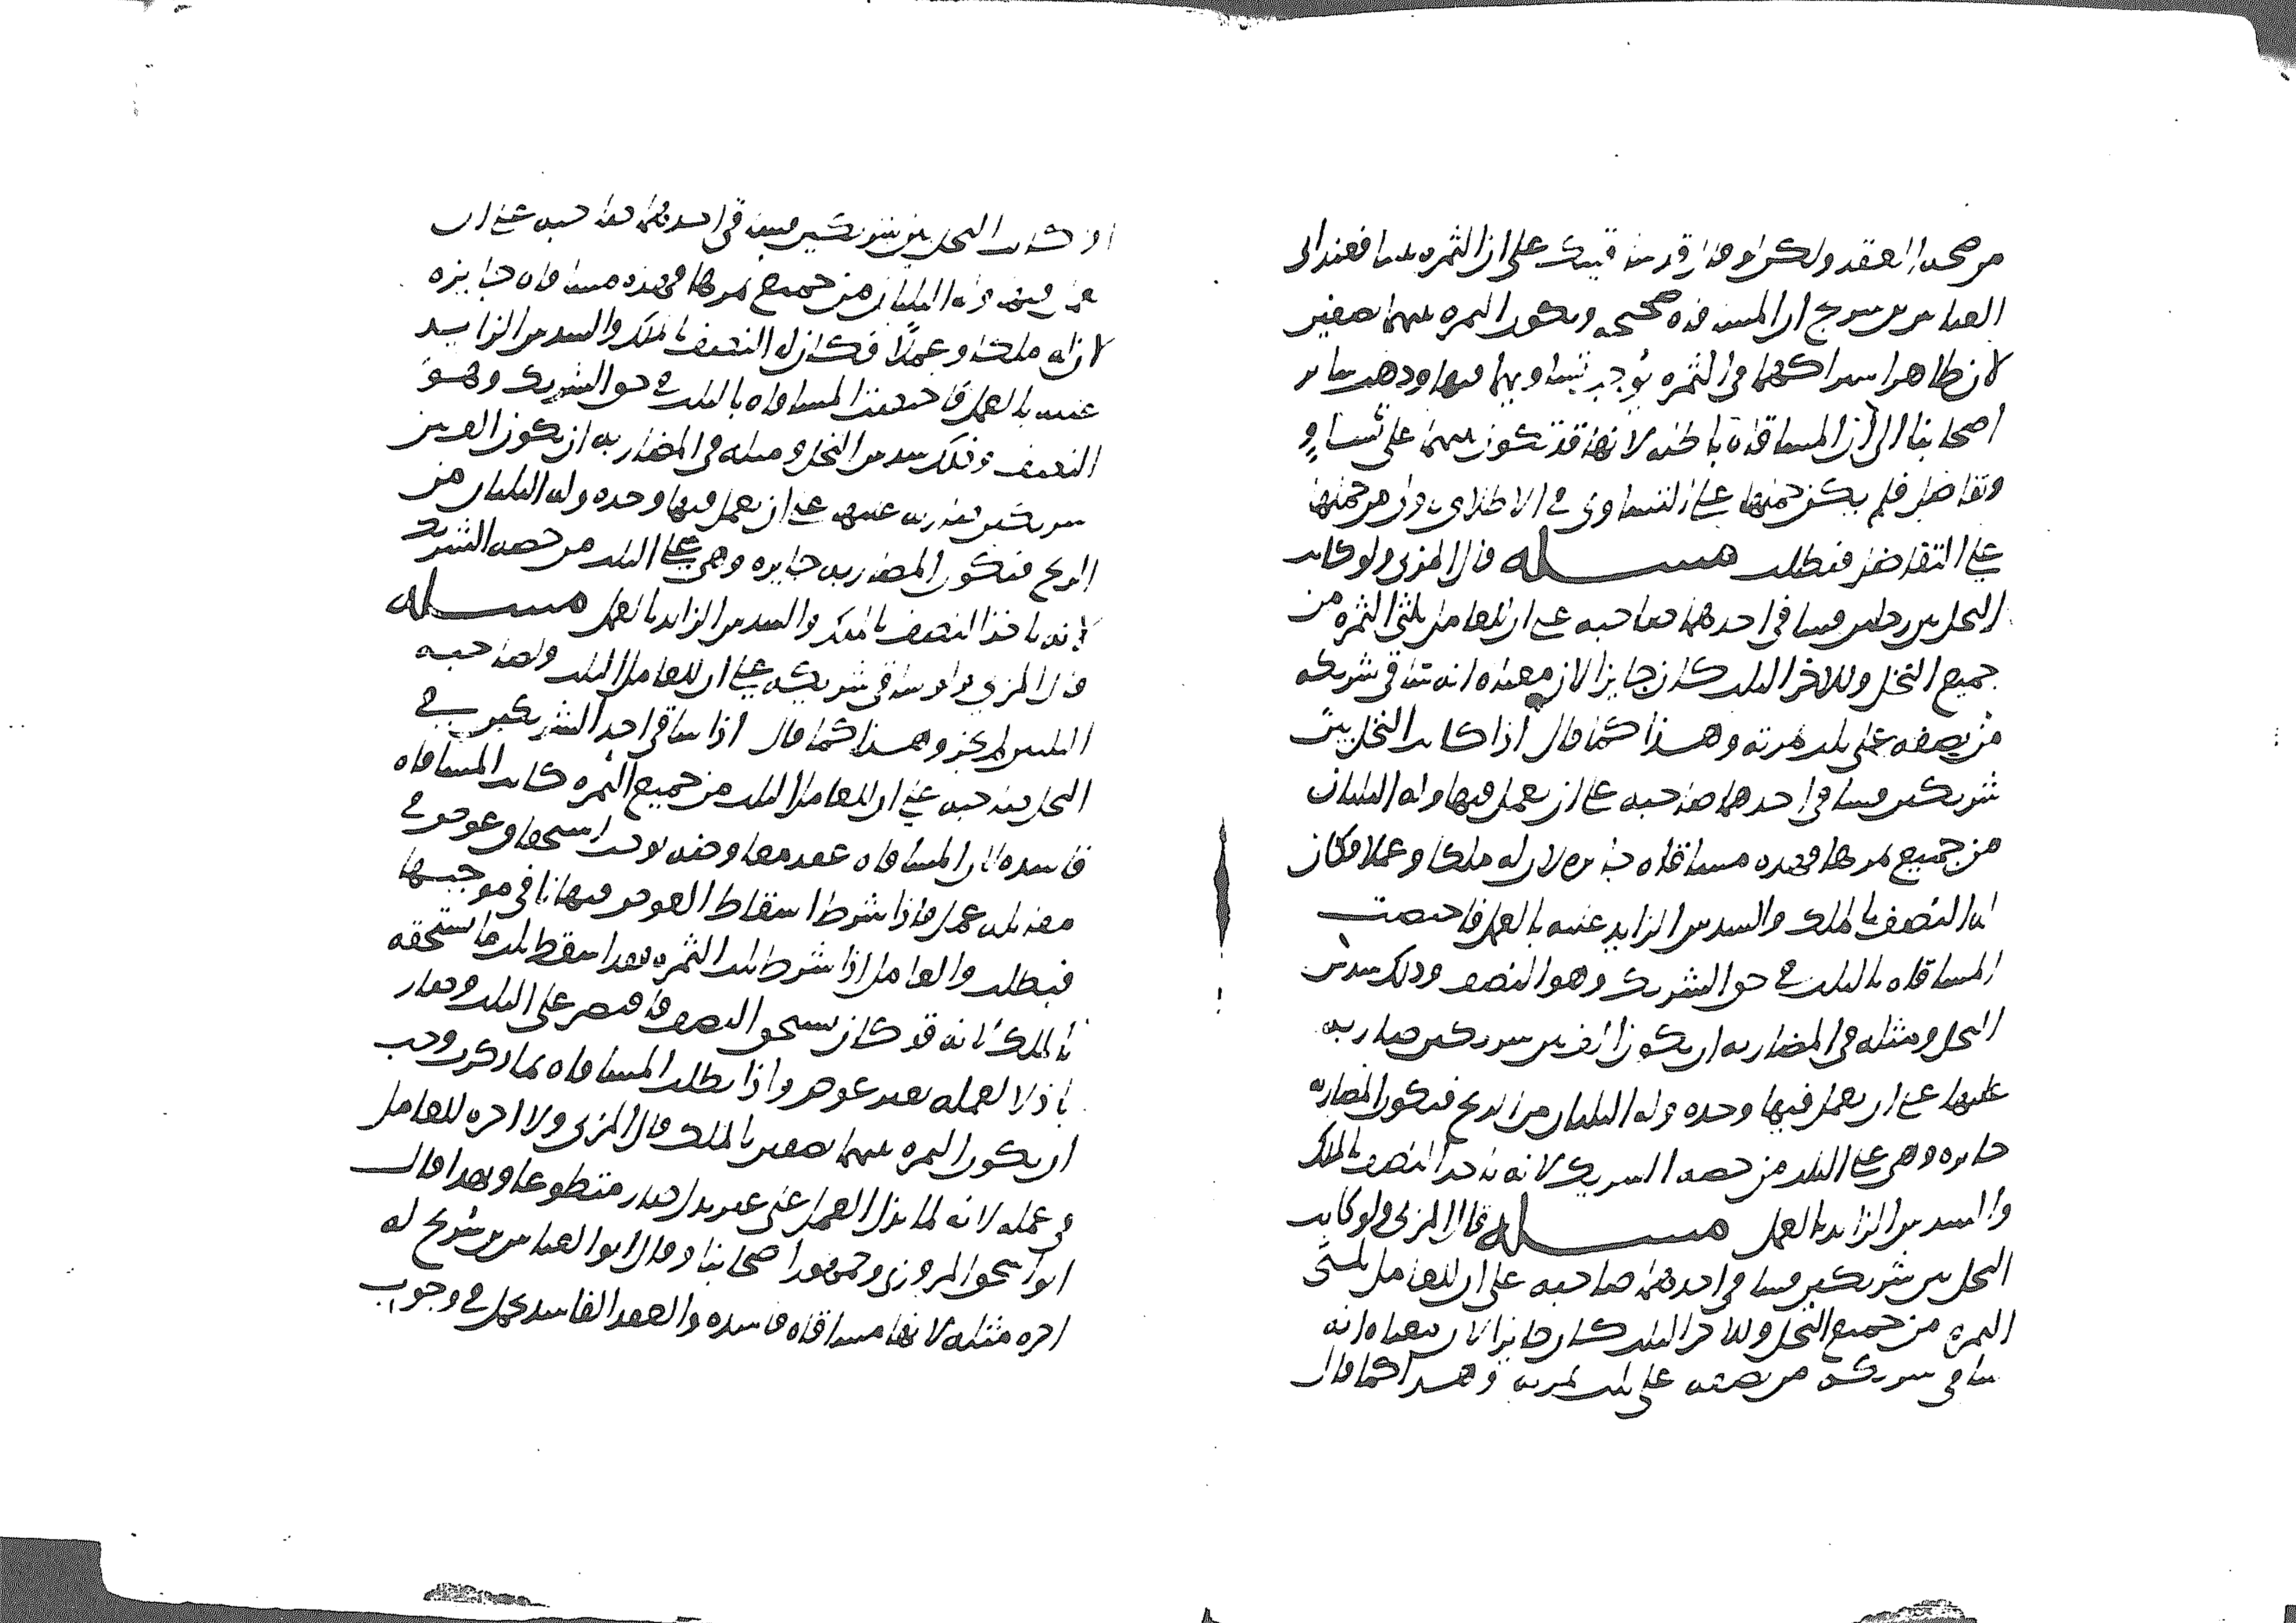 من صحه العقد ولكن لو قال قد ساقيتك على ان الثمره بيننا فعند ابى
العباس بن سريج ان المساقاه صحيحه وتكون الثمره بينهما نصفين
لان ظاهر اشتراكهما فى الثمره يوجب تساويهما فيها وذهب سائر
اصحابنا الى ان المساقاة باطله لانها قد تكون بينهما على تساوٍ
وتفاضل فلم يكن حملها على التساوى فى الاطلاق باولى من حملها
على التفاضل فبطلت مسله قال المزنى ولو كانت
النخل بين رجلين فساقى احدهما صاحبه على ان للعامل ثلثى الثمره من
جميع النخل وللاخر الثلث كان جايزا لان معناه انه ساقى شريكه
فى نصفه على ثلث ثمرته وهذا كما قال اذا كانت النخل بين
شريكين فساقى احدهما صاحبه على ان يعمل فيها وله الثلثان
من جميع ثمرها فهذه مساقاه جايزه لان له ملكا وعملا فكان
له النصف بالملك والسدس الزايد عنه بالعمل فاختصت
المساقاه بالثلث فى حق الشريك وهو النصف وذلك سدس
النخل ومثله فى المضاربه ان يكون الف بين شريكين ضاربه
عليها على ان يعمل فيها وحده وله الثلثان من الربح فتكون المضاربه
جايزه وهى على الثلث من حصه الشريك لانه ياخذ النصف بالملك
والسدس الزايد بالعمل مسله قال المزنى ولو كانت
النخل بين شريكين فساقى احدهما صاحبه على ان للعامل ثلثى
الثمره من جميع النخل وللاخر الثلث كان جايزا لان معناه انه
ساقى شريكه فى نصفه على ثلث ثمرته وهذا كما قال
اذ كانت النخل بين شريكين فساقى احدهما صاحبه على ان
يعمل فيها وله الثلثان من جميع ثمرها فهذه مساقاه جايزه
لان له ملكا وعملاً فكان له النصف بالملك والسدس الزايد
عنه بالعمل فاختصت المساقاه بالثلث فى حق الشريك وهو
النصف وذلك سدس النخل ومثله فى المضاربه ان يكون الف بين
شريكين ضاربه عليها على ان يعمل فيها وحده وله الثلثان من
الربح فتكون المضاربه جايزه وهى على الثلث من حصه الشريك
لانه ياخذ النصف بالملك والسدس الزايد بالعمل مسله
قال المزنى ولو ساقى شريكه على ان للعامل الثلث ولصاحبه
الثلثين لم يجز وهذا كما قال اذا ساقى احد الشريكين فى
النخل صاحبه على ان للعامل الثلث من جميع الثمره كانت المساقاه
فاسده لان المساقاه عقد معاوضه يوجب استحقاق عوض فى
مقابله عمل فاذا شرط اسقاط العوض فيها نافى موجبها
فبطلت والعامل اذا شرط ثلث الثمره فقد اسقط ثلث ما يستحقه
بالملك لانه قد كان يستحق النصف فاقتصر على الثلث وصار
باذلا لعمله بغير عوض واذا بطلت المساقاه بما ذكرت وجب
ان يكون الثمره بينهما نصفين بالملك قال المزنى ولا اجره للعامل
فى عمله لانه لما بذل العمل عن غير بدل صار متطوعا وبهذا قال
ابو اسحق المروزى وجمهور اصحابنا وقال ابو العباس بن سريج له
اجره مثله لانها مساقاه فاسده والعقد الفاسد يحمل فى وجوب